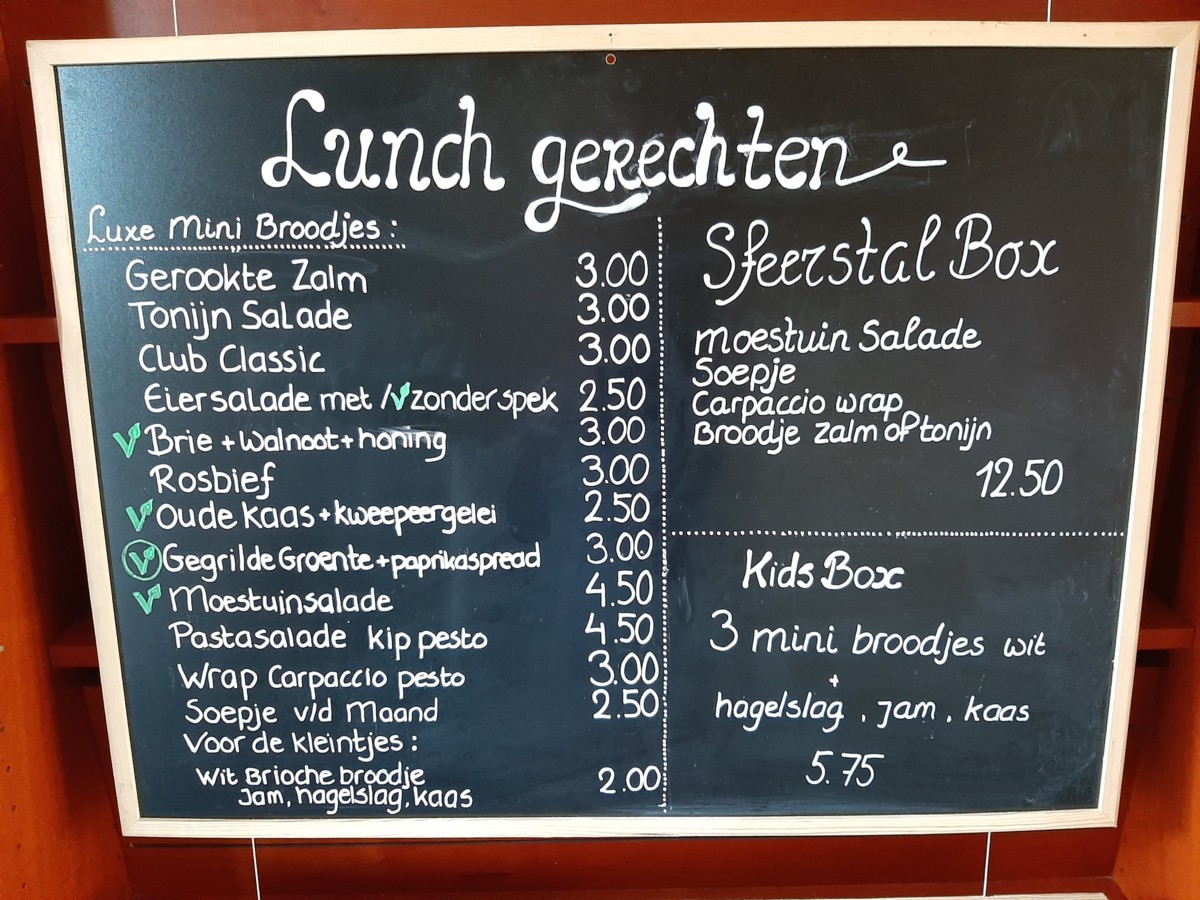 Lunch gerechten
Luxe Mini Broodjes :
Gerookte Zalm 3.00
Tonijn Salade 3.00
Club Classic 3.00
Eiersalade met / V zonder spek 2.50
V Brie + walnoot + honing 3.00
Rosbief 3.00
V Oude Kaas + kweepeergelei 2.50
V Gegrilde Groente + paprikaspread 3.00
V Moestuinsalade 4.50
Pastasalade kip pesto 4.50
Wrap Carpaccio pesto 3.00
Soepje v/d Maand 2.50
Voor de kleintjes :
Wit Brioche broodje 2.00
Jam, hagelslag, kaas
Sfeerstal Box
Moestuin Salade
Soepje
Carpaccio wrap
Broodje zalm of tonijn
12.50
Kids Box
3 mini broodjes wit
+
hagelslag , jam , kaas
5.75